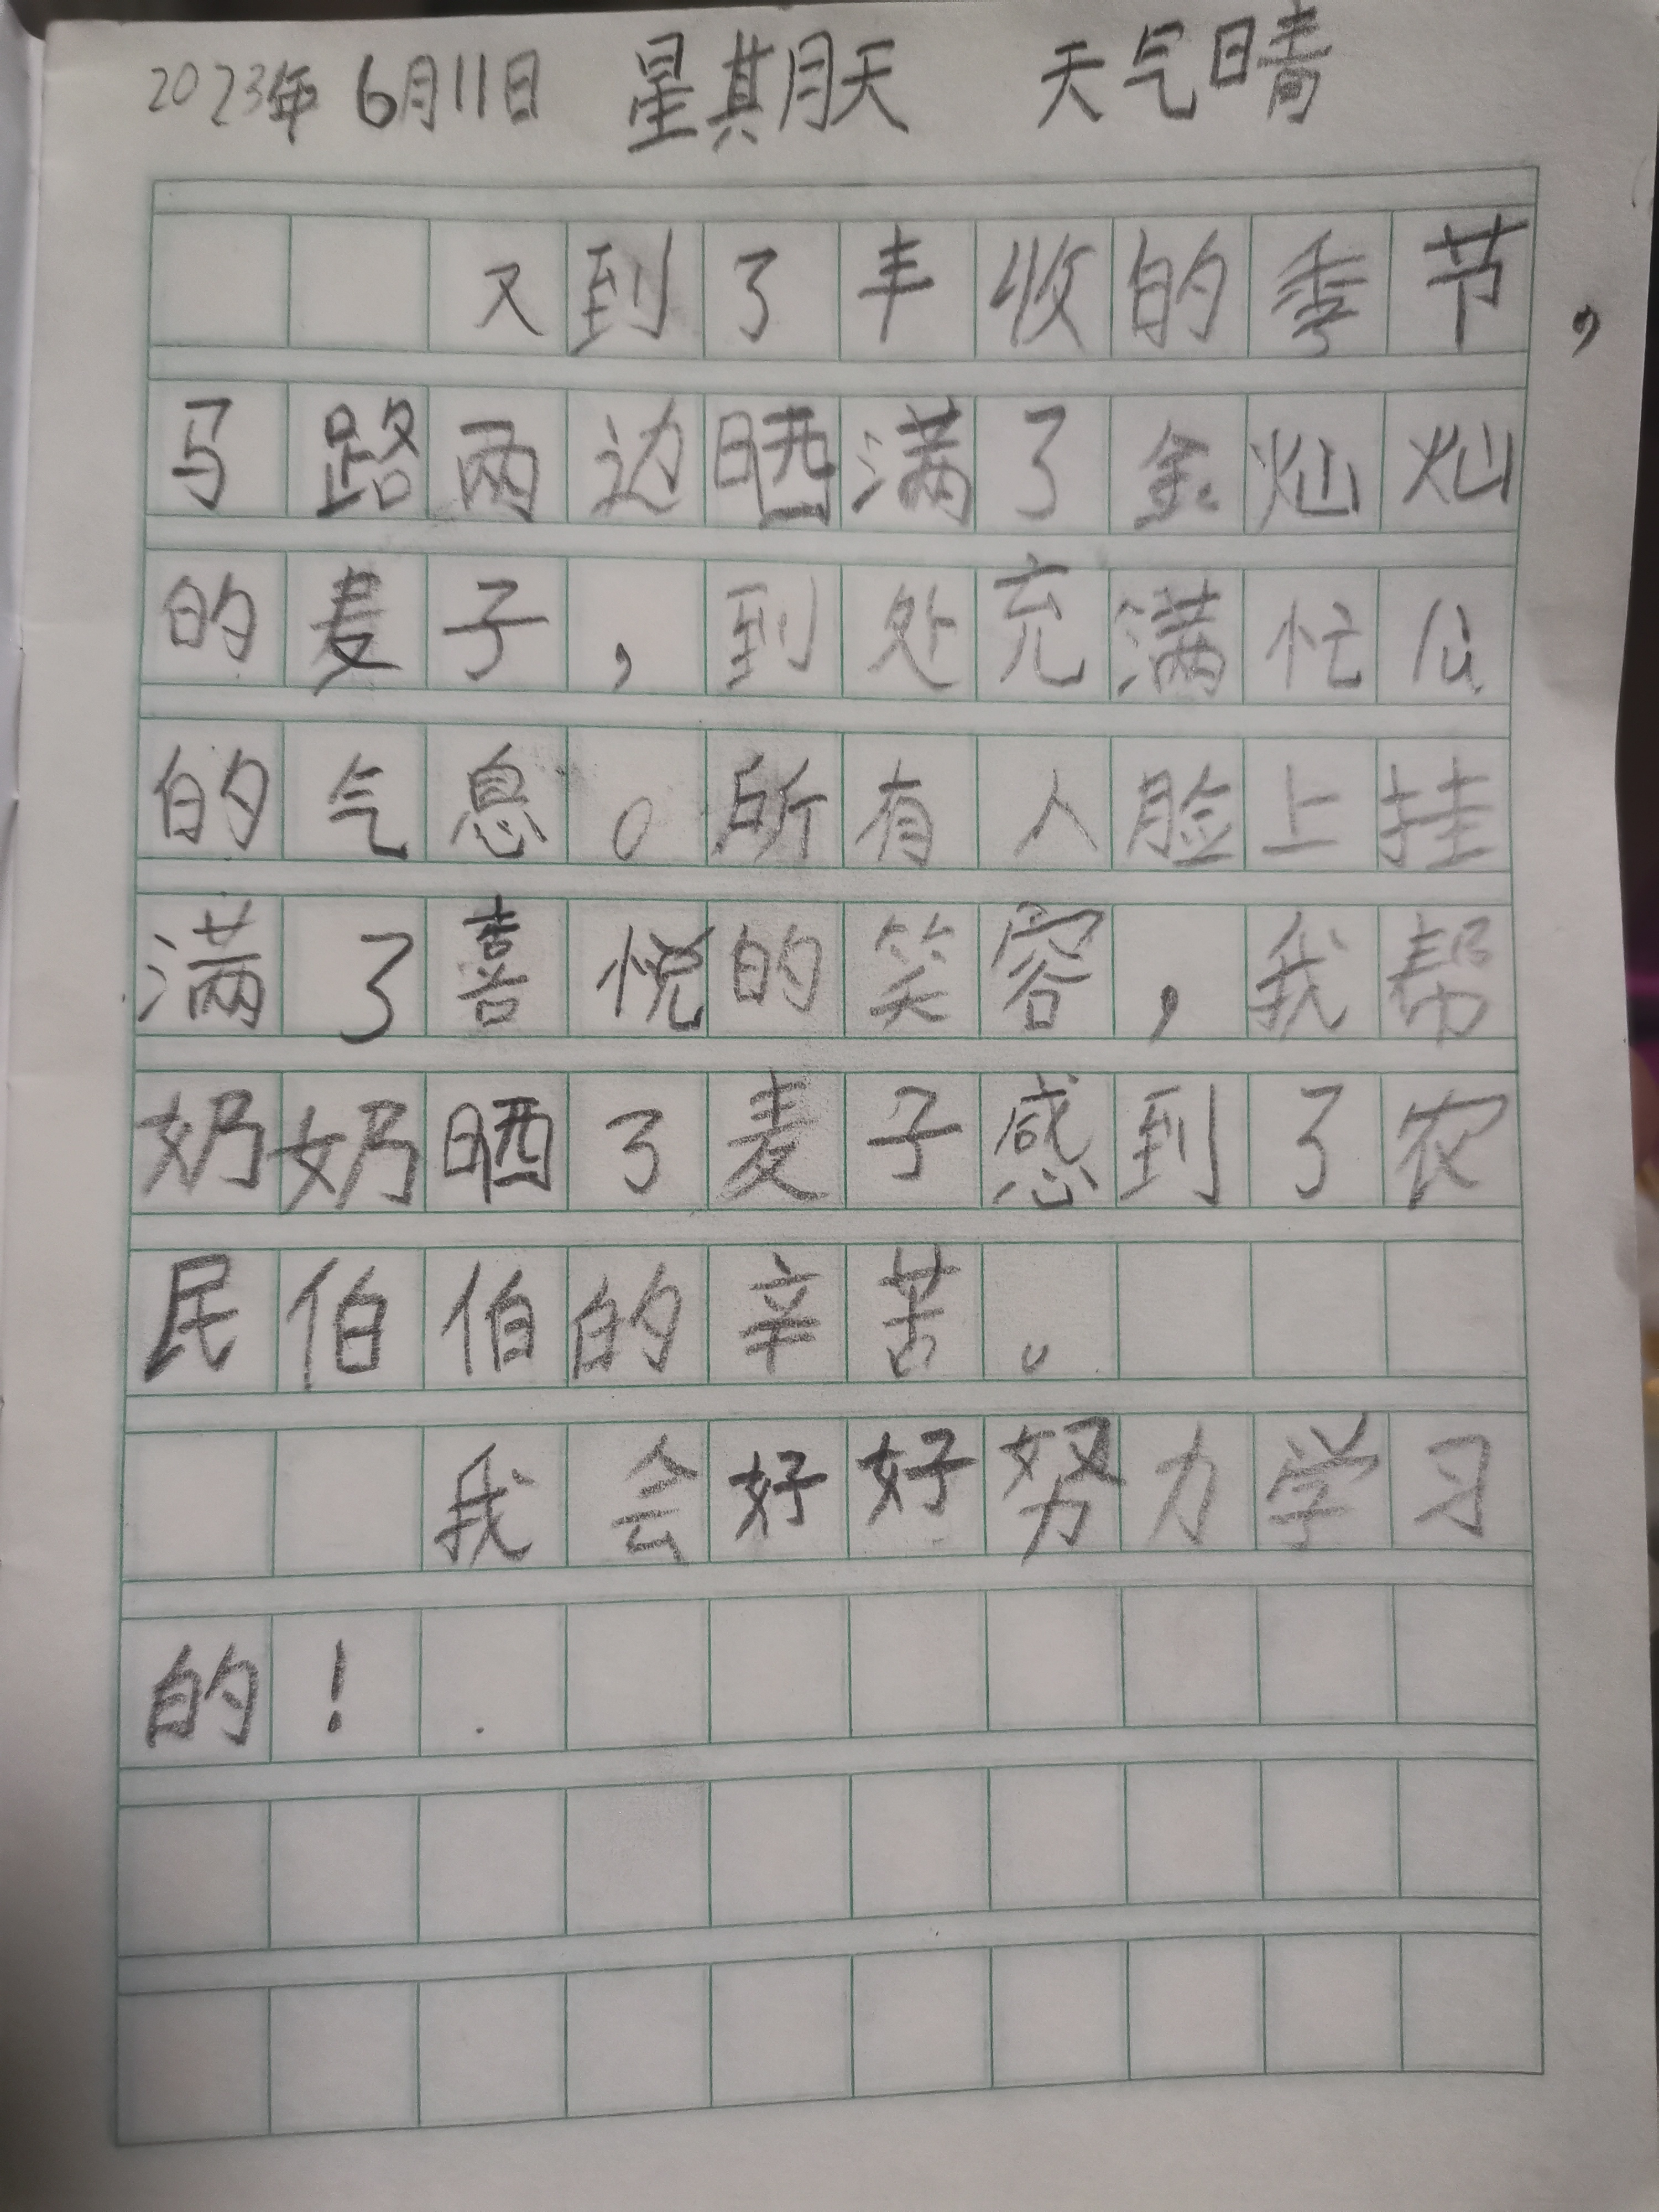 2023年6月11日 星期天 天气晴
又到了丰收的季节，
马路两边晒满了金灿灿
的麦子，到处充满忙
的气息。所有人脸上挂
满了喜悦的笑容，我帮
奶奶晒了麦子感到了农
民伯伯的辛苦。
我会好好努力学习
的！